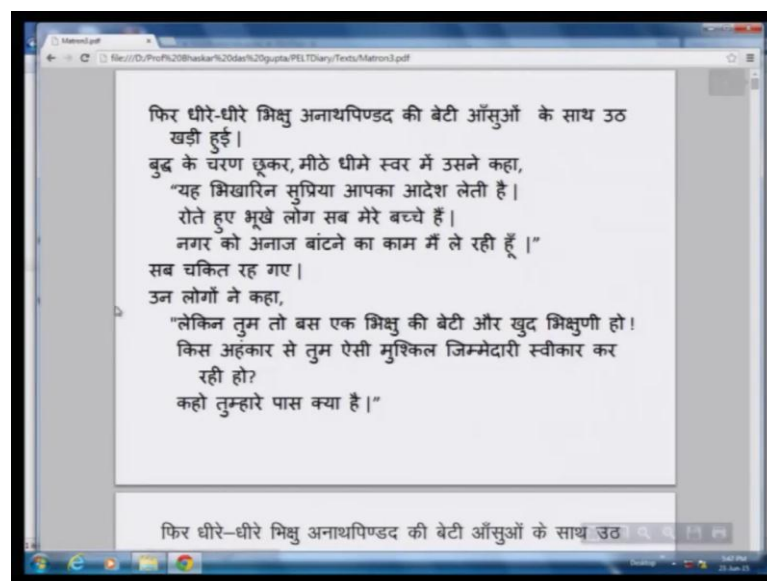 Matron3.pdf
file:///D:/Prof%20Bhaskar%20das%20gupta/PELTDiary/Texts/Matron3.pdf
फिर धीरे-धीरे भिक्षु अनाथपिण्डद की बेटी आँसुओं के साथ उठ
खड़ी हुई|
बुद्ध के चरण छूकर, मीठे धीमे स्वर में उसने कहा,
"यह भिखारिन सुप्रिया आपका आदेश लेती है|
रोते हुए भूखे लोग सब मेरे बच्चे हैं|
नगर को अनाज बांटने का काम मैं ले रही हूँ |"
सब चकित रह गए|
उन लोगों ने कहा,
"लेकिन तुम तो बस एक भिक्षु की बेटी और खुद भिक्षुणी हो!
किस अहंकार से तुम ऐसी मुश्किल जिम्मेदारी स्वीकार कर
रही हो?
कहो तुम्हारे पास क्या है|"
फिर धीरे–धीरे भिक्षु अनाथपिण्डद की बेटी आँसुओं के साथ उठ
Desktop
5:47 PM
23-Jun-15